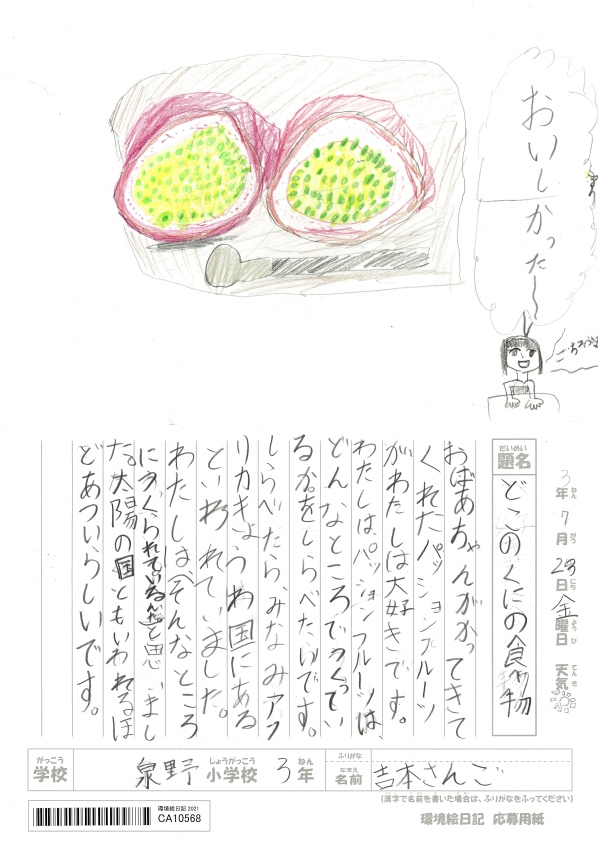 おいしかった〜
ごちそうさま
3年7月23日金曜日 天気
ねん がつ にち ようび てんき
だいめい
題名 どこのくにの食べ物
おばあちゃんがかってきて
くれたパッションフルーツ
がわたしは大好きです。
わたしはパッションフルーツは、
どんなところでつくってい
るかをしらべたいです。
しらべたら、みなみアフ
リカきょうわ国にある
といわれていました。
わたしは(そんなところ
につくられているんだ)と思いまし
た。太陽の国ともいわれるほ
どあついらしいです。
がっこう しょうがっこう ねん ふりがな
学校 泉野 小学校 3年 名前 吉本さんご
なまえ
(漢字で名前を書いた場合は、ふりがなをふってください)
環境絵日記 応募用紙
環境絵日記 2021
CA10568